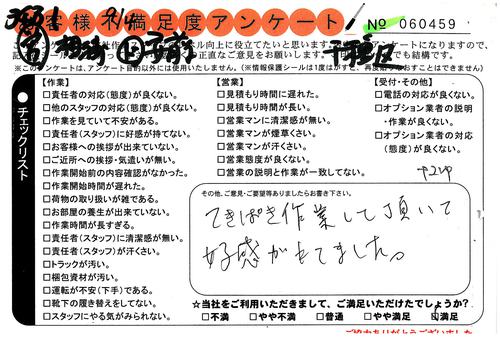 お客様不満足度アンケート
9/4
№ 060459
ル向上に役立てたいと思います
アンケートになりますので、
正直なご意見をお願い
でも結構です。
※このアンケートは、アンケート目的以外には使用いたしません。(※情報保護シールは1度はがすと、再度貼りつけできません)
チェックリスト
【作業】
□責任者の対応(態度)が良くない。
□他のスタッフの対応(態度)が良くない。
□作業を見ていて不安がある。
□責任者(スタッフ)に好感が持てない。
□お客様への挨拶が出来ていない。
□ご近所への挨拶・気遣いが無い。
□作業開始前の内容確認がなかった。
□作業開始時間が遅れた。
□荷物の取り扱いが雑である。
□お部屋の養生が出来ていない。
□作業時間が長すぎる。
□責任者(スタッフ)に清潔感が無い。
□責任者(スタッフ)が汗くさい。
□トラックが汚い。
□梱包資材が汚い。
□運転が不安(下手)である。
□靴下の履き替えをしてない。
□スタッフにやる気がみられない。
【営業】
□見積もり時間に遅れた。
□見積もり時間が長い。
□営業マンに清潔感が無い。
□営業マンが煙草くさい。
□営業マンが汗くさい。
□営業態度が良くない。
□営業の説明と作業が一致してない。
【受付・その他】
□電話の対応が良くない。
□オプション業者の説明
・作業が良くない。
□オプション業者の対応
(態度)が良くない。
その他、ご意見・ご要望等ありましたらお書き下さい。
てきぱき作業して頂いて
好感がもてました。
☆当社をご利用いただきまして、ご満足いただけたでしょうか?
□不満 □やや不満 □普通 □やや満足 □満足
ご協力ありがとうございました